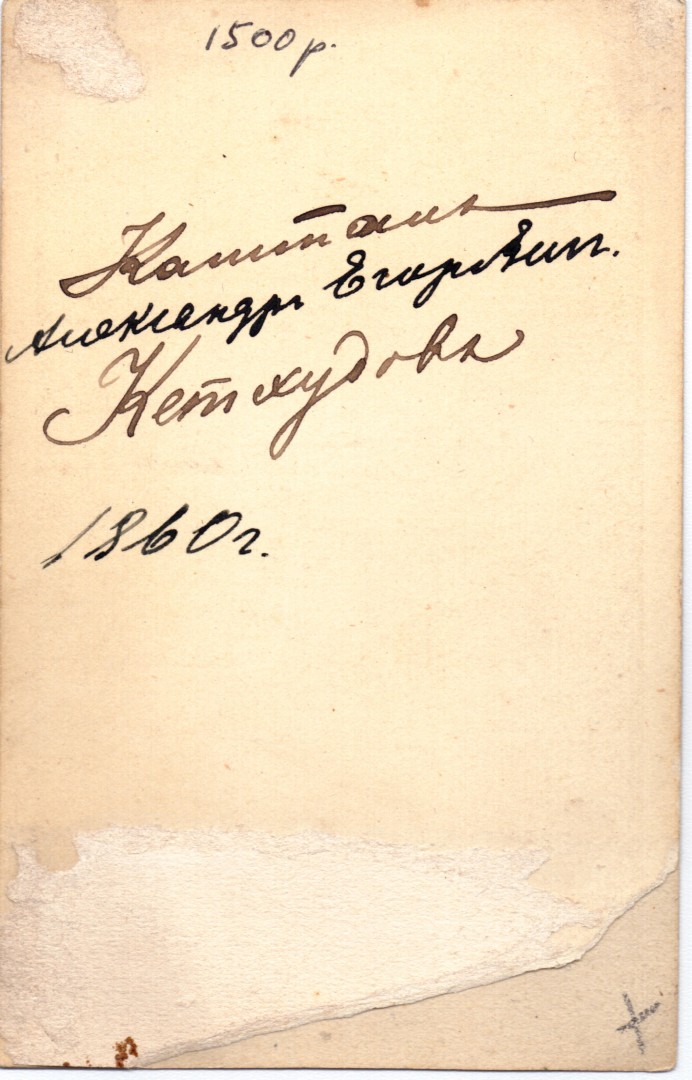 1500 р.
Капитанъ
Александръ Егоровичъ.
Кетхудовъ
1860 г.